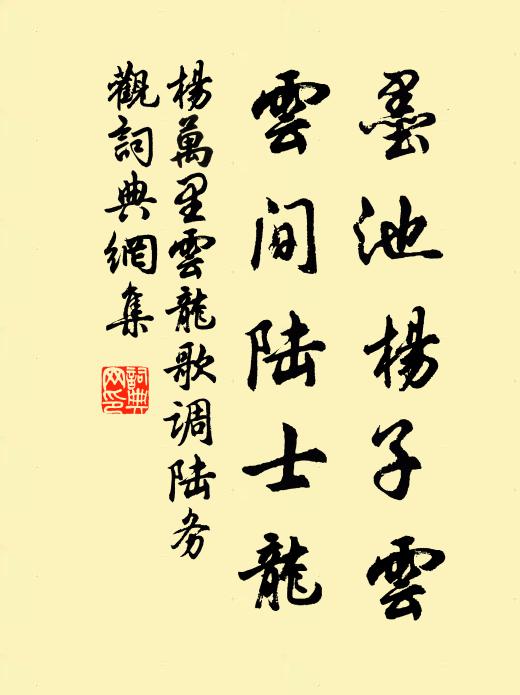 墨池楊子雲
雲間陆士龍
楊萬里雲龍歌调陆务
觀詞典網集
詞典
网印